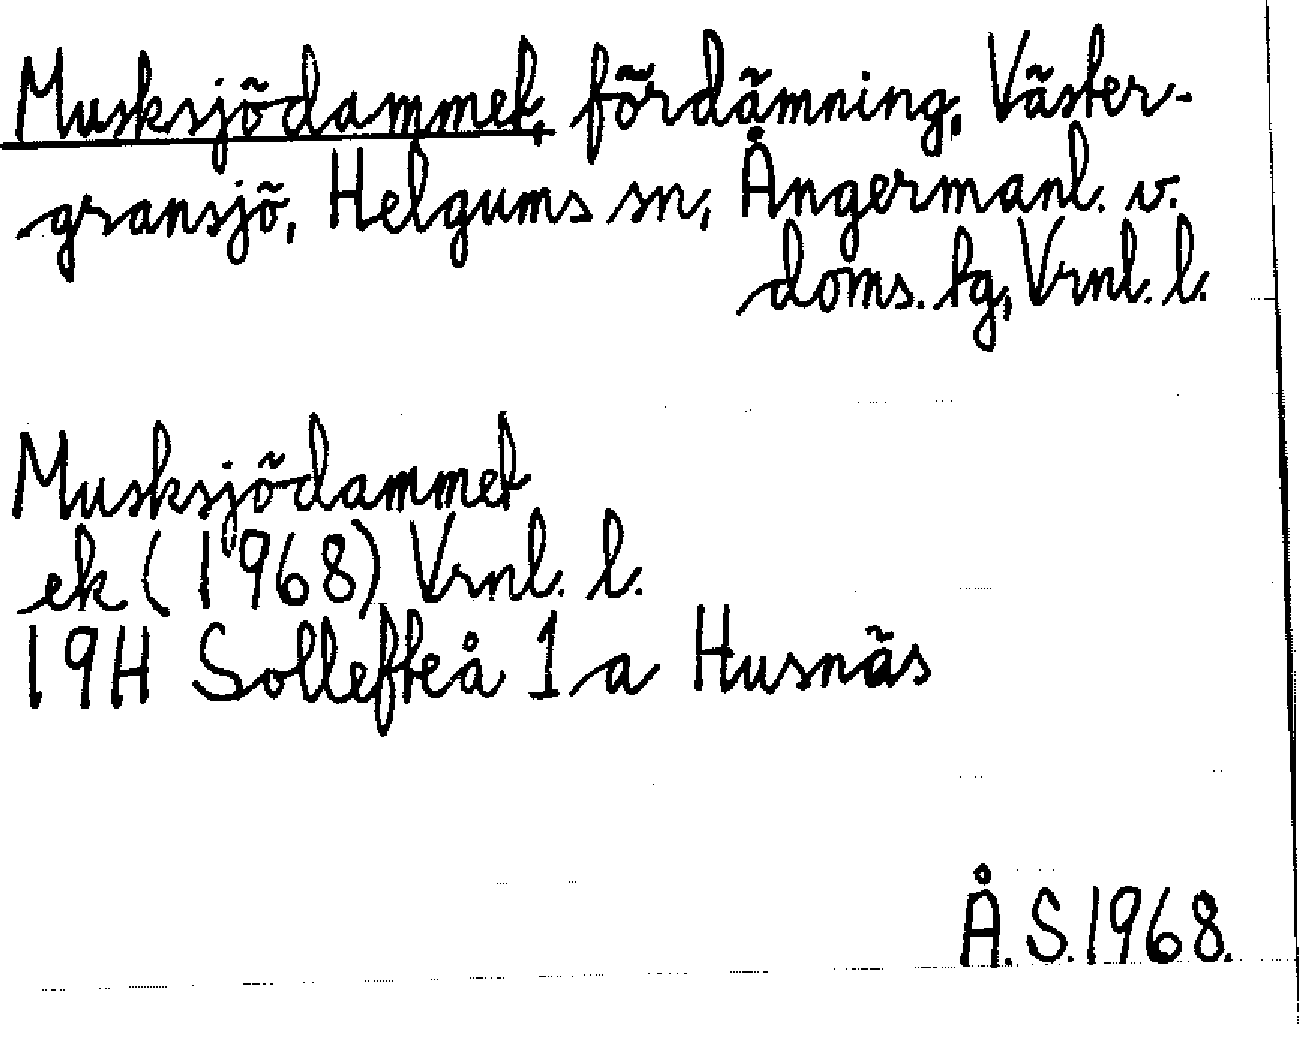 Musksjödammet, fördämning, Väster-
gransjö, Helgums sn, Ångermanl. v.
doms. tg, Vrnl. l.
Musksjödammet
ek (1968) Vrnl. l.
19H Sollefteå 1 a Husnäs
Å.S. 1968.